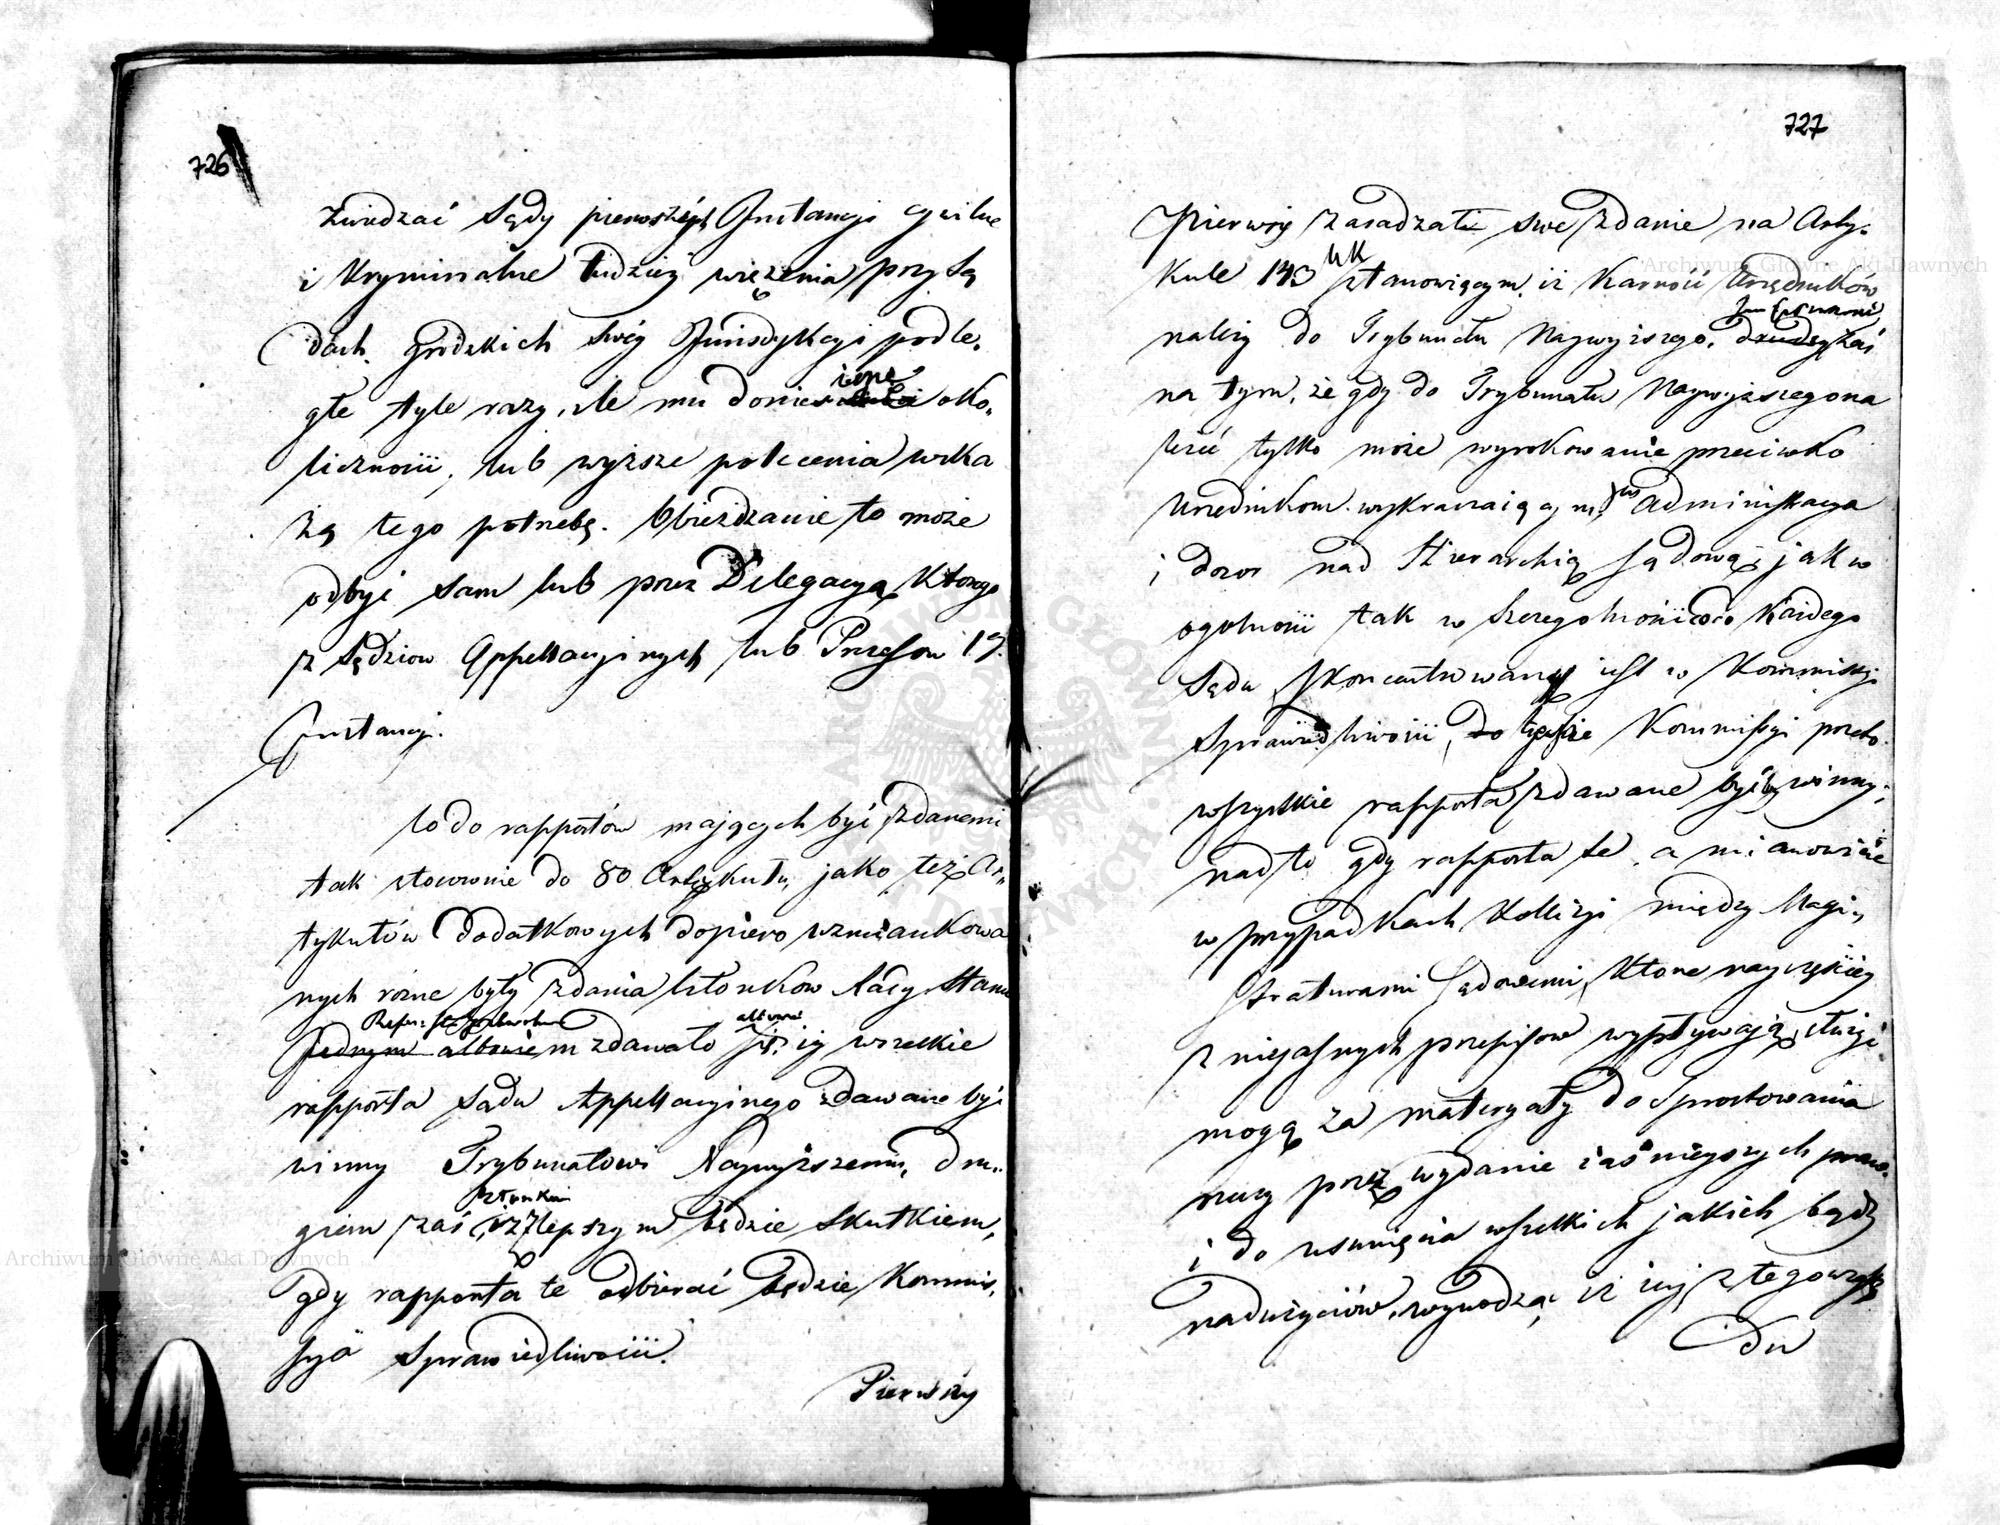 726
zwiedzać Sądy pierwszéy Instancyi cywilne
i Kryminalne tudzież więzienia przy Są
dach Grodzkich swéy Jurisdykcyi podle,
głe tyle razy, ile mu donies okо,
liczności, lub wyższe polecenia wska
żą tego potrzebę. Obieżdzanie to może
odbyć sam lub przez Delegacyą Ktorego
z Sędziow Appellacyinych lub Prezesow 1y.
Instancyi.
Co do rapportów maiących być zdanemi
tak stosownie do 80 Artykułu, jako też Ar,,
tykułów dodatkowych dopiero wzmiankowa
nych rożne były zdania Członkow Rady Stanu
Jednym albowiem zdawało się, iż wszelkie
rapporta Sądu Appellacyinego zdawane być
winny Trybunałowi Naywyższemu, dru,,
Członkom
giem zaś, iż z lepszym będzie skutkiem,
gdy rapporta te odbierać będzie Kommis,
syia Sprawiedliwości.
Pierwszy
727
Pierwsi zasadzali swe zdanie na Arty,
kule 143 stanowiącym, iż Karność Urzędników
należy do Trybunału Naywyższego,
na tym, że gdy do Trybunału Naywyższego na
leżeć tylko może wyrokowanie przeciwko
Urzędnikom wykraczaiącym, w Administracya
i dozor nad Hierarchią sądową, jak w
ogolności tak w szczegolności co do Każdego
Sądu skoncentrowany iest w Kommissyi
Sprawiedliwości, do teyże Kommissyi przeto
wszystkie rapporta zdawane być by winny;
nadto gdy rapporta te, a mianowicie
w przypadkach Kollizyi między Magi,,
straturami Sądowemi, Ktore nayczęściey
z nieiasnych przepisow wypływaią, służyć
mogą za materyały do sprostowania
rzeczy przez wydanie iaśnieyszych praw
i do usunięcia wszelkich jakich bądź
nadużyciów, wywodzą, iż iey z tego wzglę
du